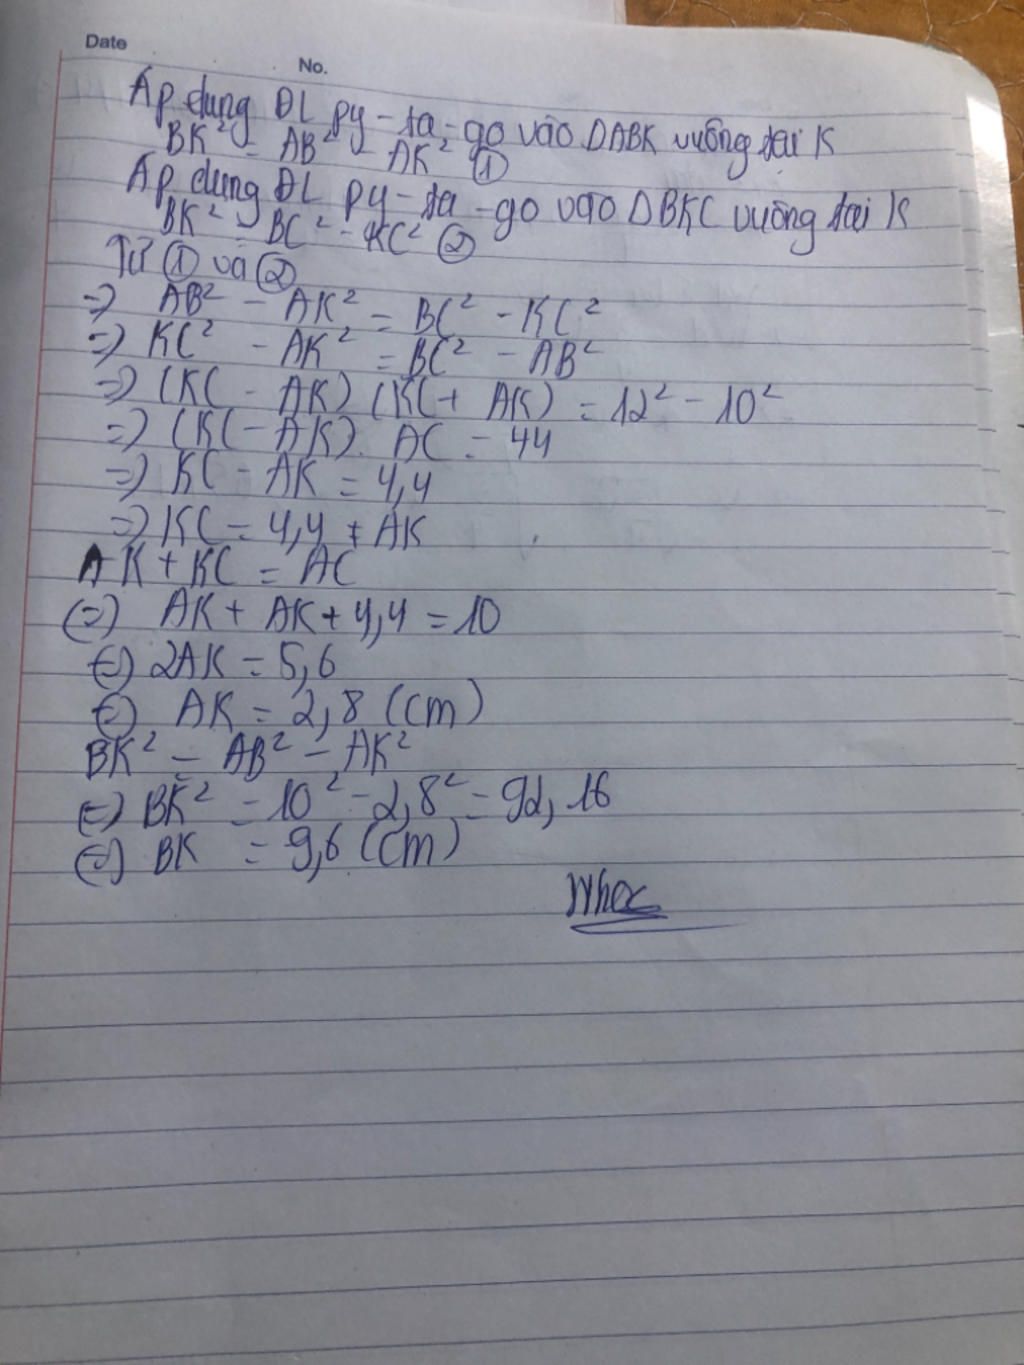 Date
No.
Áp dụng ĐL py-ta-go vào ΔABK vuông tại K
BK² = AB² - AK² ①
Áp dụng ĐL py-ta-go vào ΔBKC vuông tại K
BK² = BC² - KC² ②
Từ ① và ②
=) AB² - AK² = BC² - KC²
=) KC² - AK² = BC² - AB²
=) (KC - AK) (KC + AK) = 12² - 10²
=) (KC - AK). AC = 44
=) KC - AK = 4,4
=) KC = 4,4 + AK
AK + KC = AC
(=) AK + AK + 4,4 = 10
(=) 2AK = 5,6
(=) AK = 2,8 (cm)
BK² = AB² - AK²
(=) BK² = 10² - 2,8² = 92,16
(=) BK = 9,6 (cm)